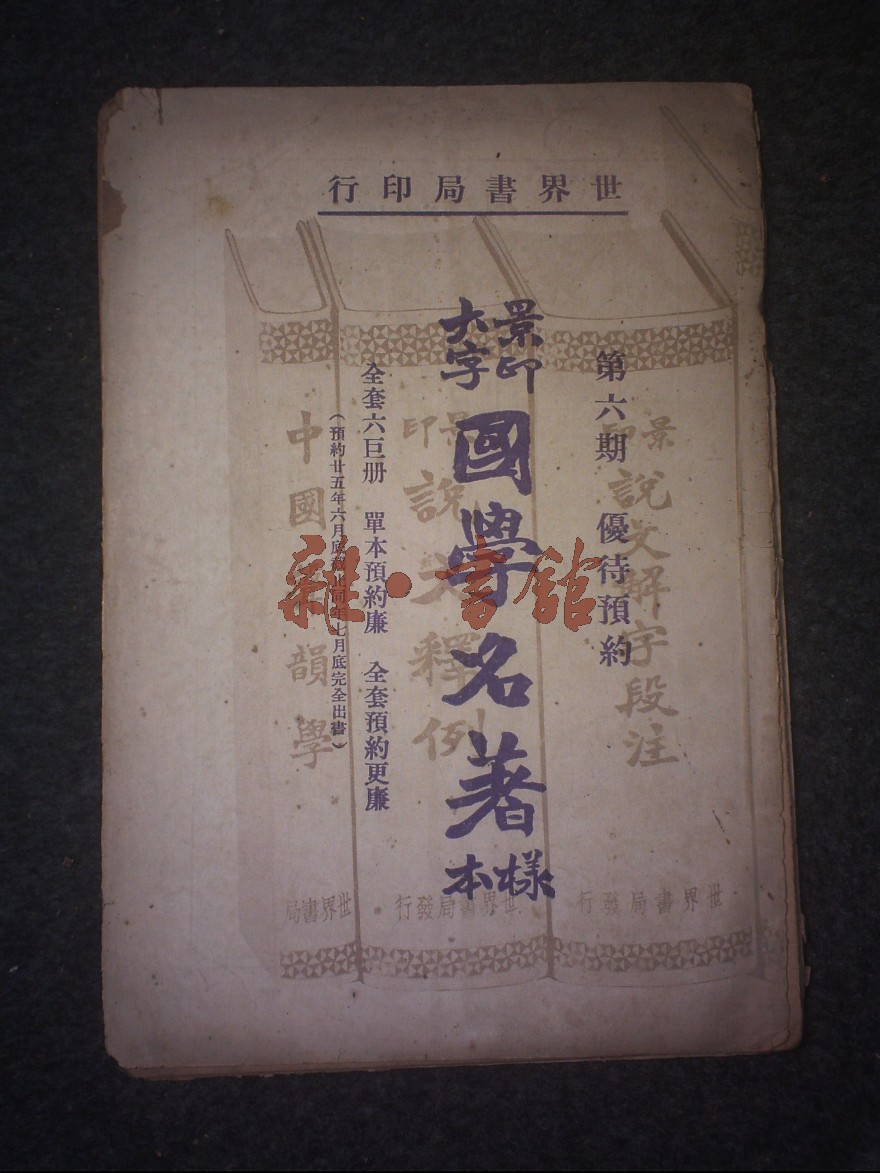 世界書局印行
第六期　優待預約
景印
大字
國學名著
樣本
全套六巨册　單本預約廉　全套預約更廉
（預約廿五年六月底 同年七月底完全出書）
景印
說文解字段注
世界書局發行
景印
說文釋例
世界書局發行
中國 韻學
世界書局
雜·書館